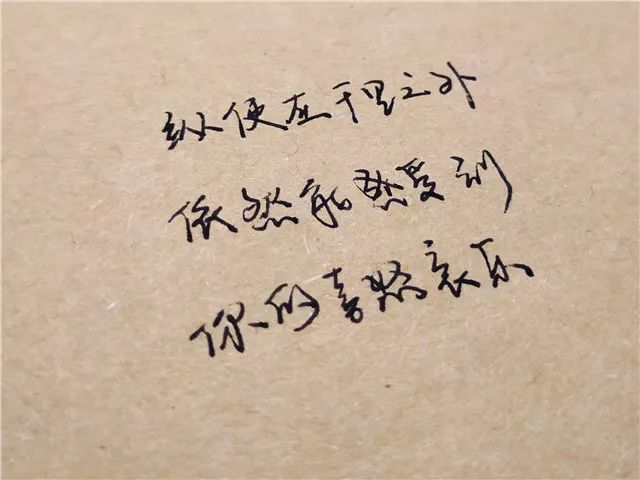 纵使在千里之外
依然能感受到
你的喜怒哀乐